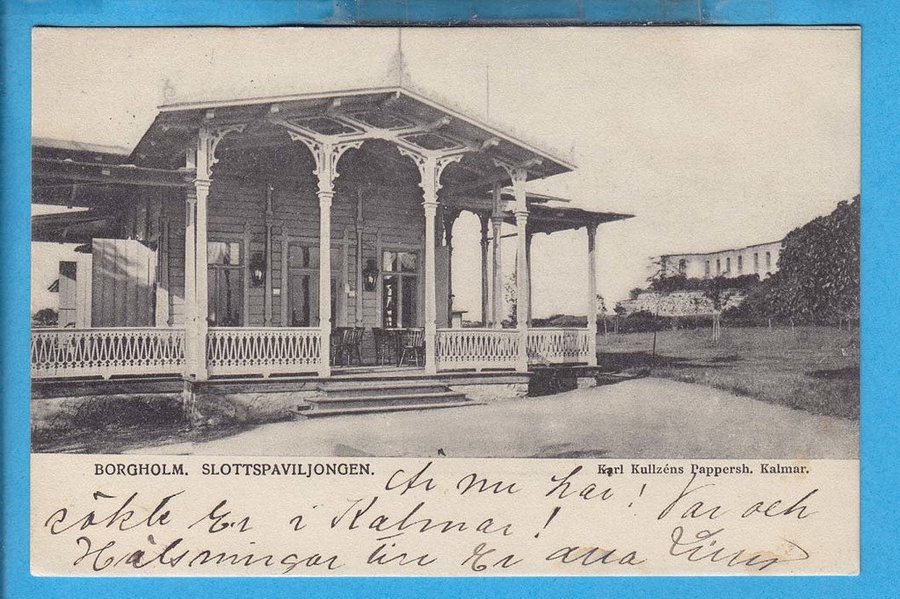 BORGHOLM. SLOTTSPAVILJONGEN.
Karl Kullzéns Pappersh. Kalmar.
Är nu här! Var och
sökte Er i Kalmar!
Hälsningar till Er alla